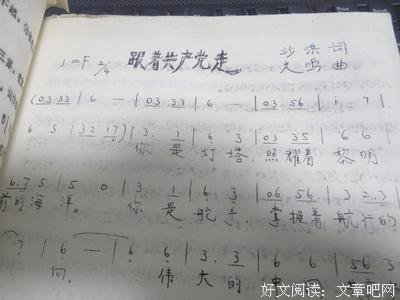 1=F 2/4 跟着共产党走 沙洪 词
久鸣 曲
(03 33 | 6 — | 03 33 | 6 — | 03 56 | i 7 |
6 5 | 32 17) | 3. 1 | 6 3 | 03 35 | 6 6 |
你 是 灯 塔 照耀着 黎明
6.7 5 | 5 0 | 3. 1 | 6 3 | 06 56 | 3 2.3 |
前的海 洋。 你 是 舵 手, 掌握着 航行的
7 | 6 — | 6. 6 | 3. 3 | 6 6 | 56 3
向。 伟 大 的
好文阅读:文章吧网